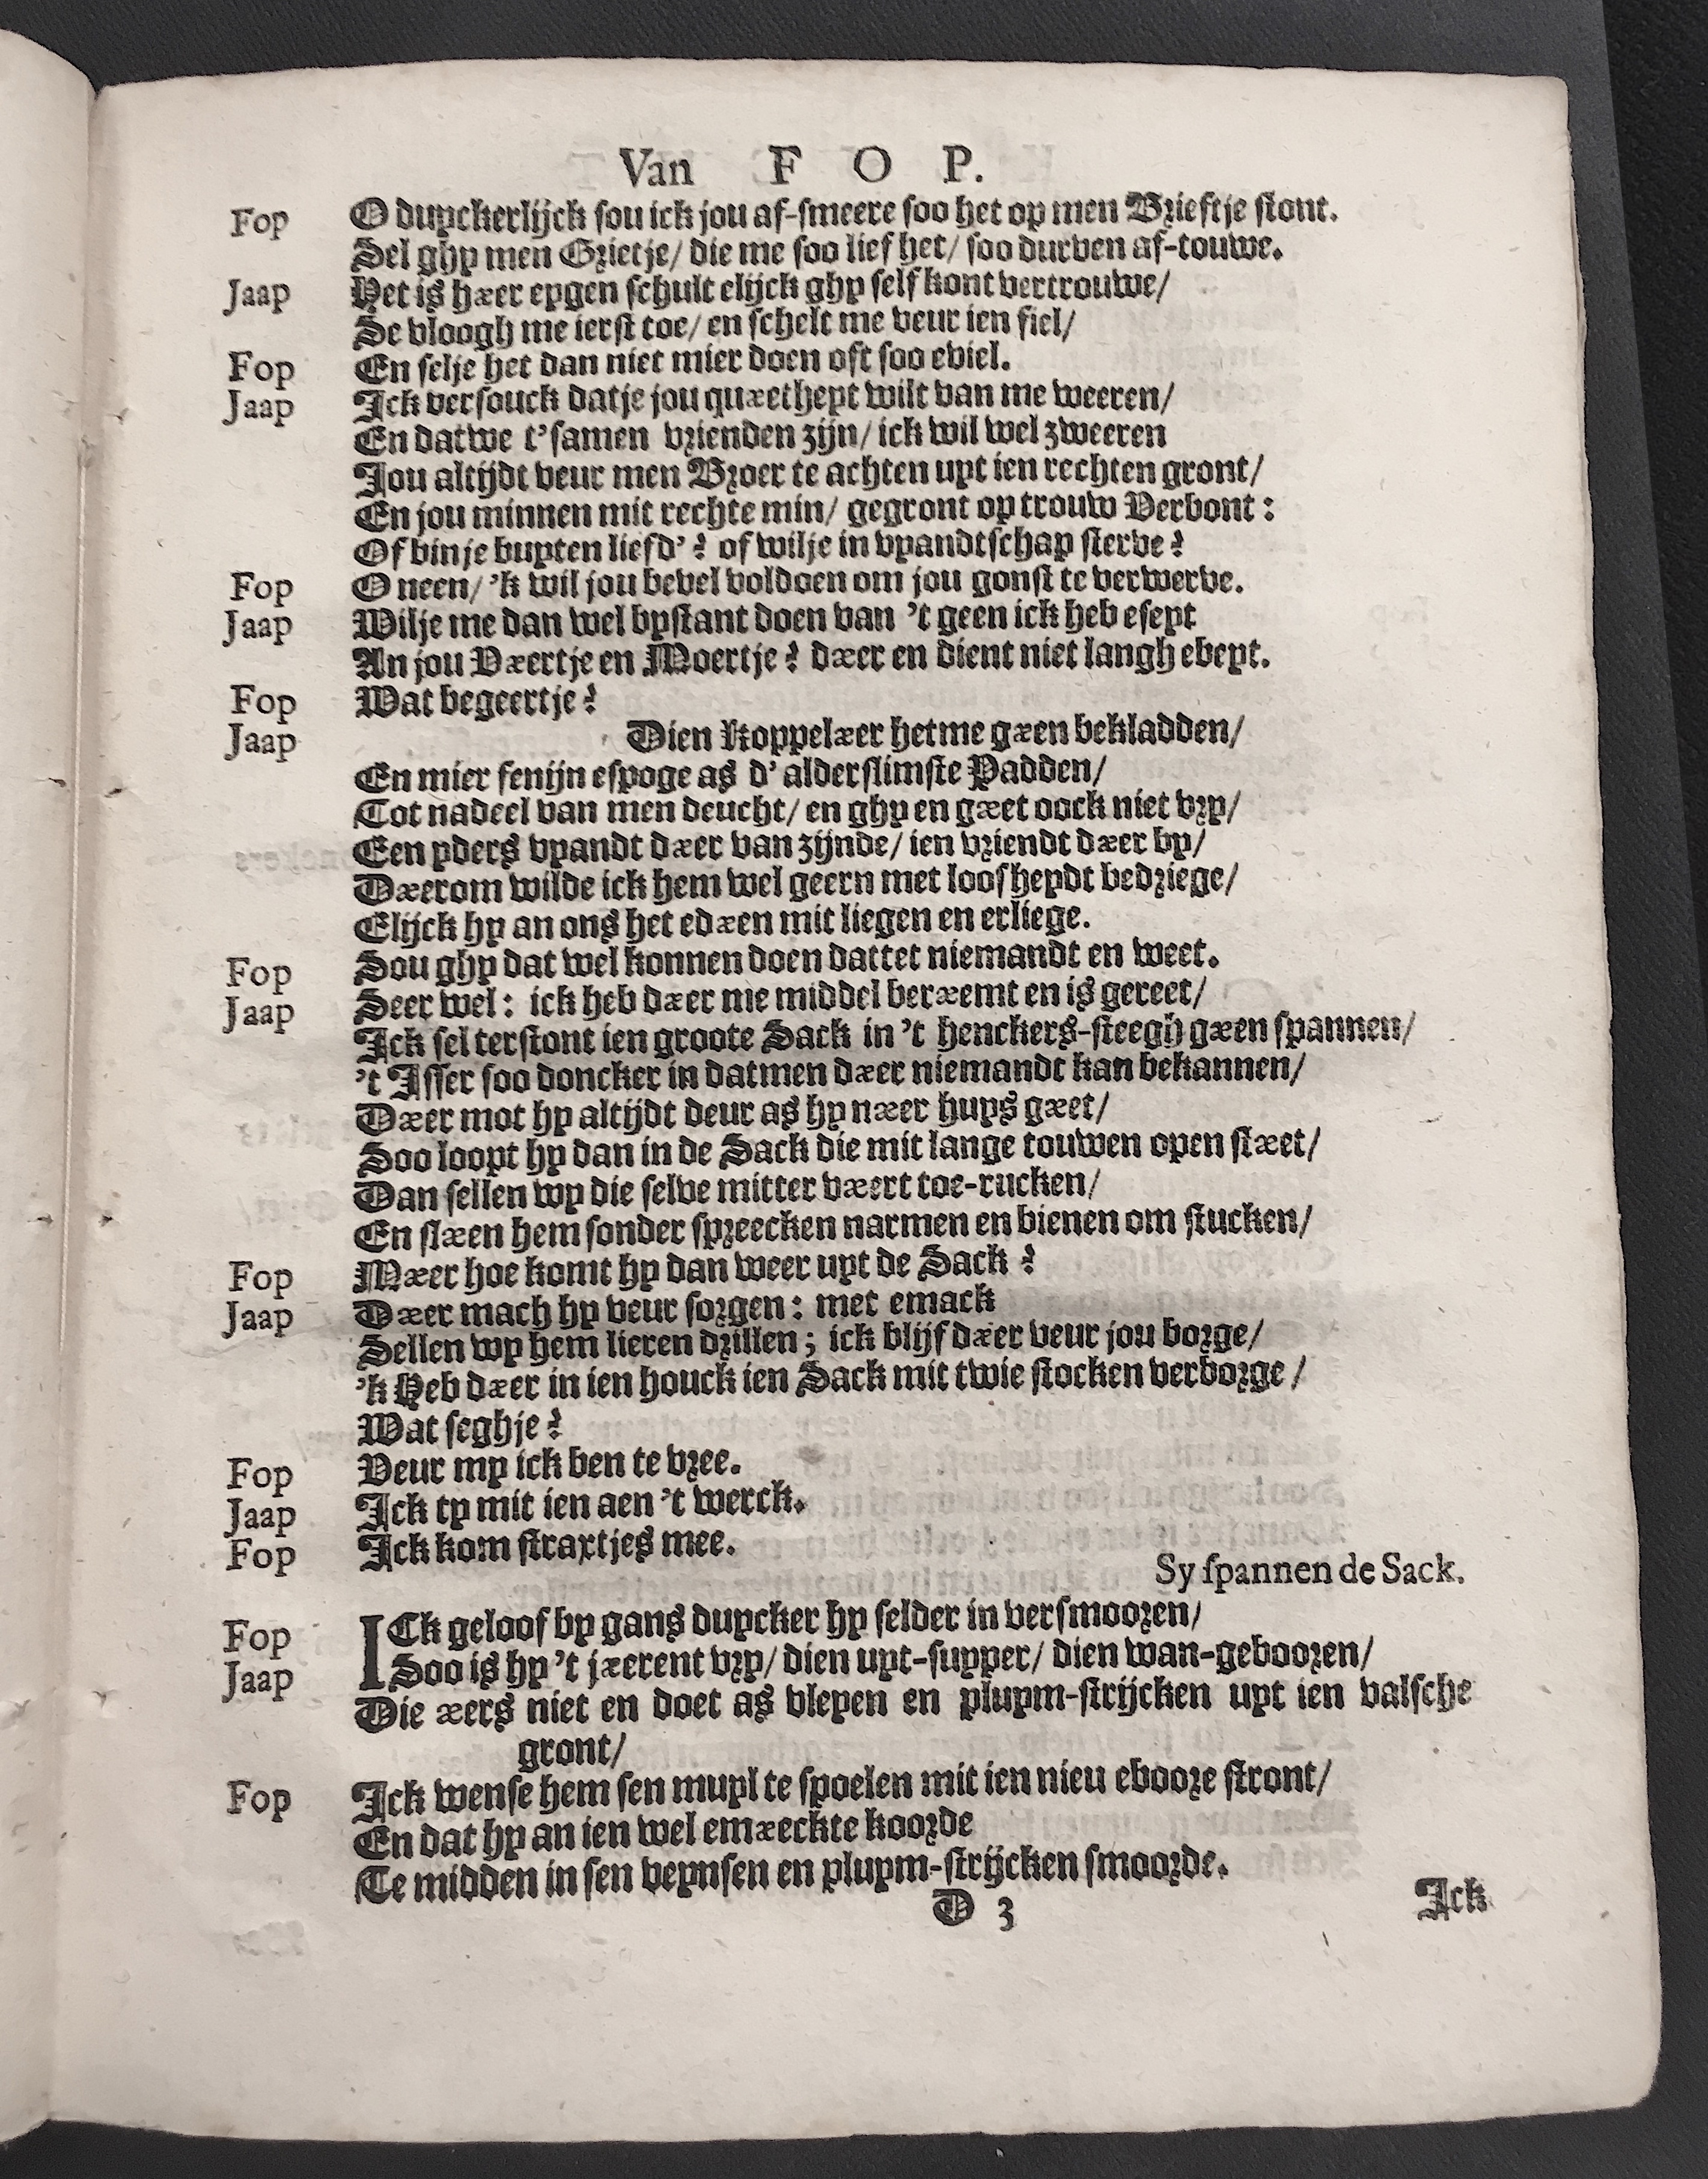 Van F O P.
Fop O duyckerlijck sou ick jou af-smeere soo het op men Brieftje stont.
Sel ghy men Grietje/ die me soo lief het/ soo durven af-touwe.
Jaap Het is hæer eygen schult elijck ghy self kont vertrouwe/
Se vloogh me ierst toe/ en schelt me veur ien fiel/
Fop En selje het dan niet mier doen oft soo eviel.
Jaap Ick versouck datje jou quæetheyt wilt van me weeren/
En datwe t'samen vrienden zijn/ ick wil wel zweeren
Jou altijdt veur men Broer te achten uyt ien rechten gront/
En jou minnen mit rechte min/ gegront op trouw Verbont:
Of binje buyten liefd'? of wilje in vyandtschap sterve?
Fop O neen/ 'k wil jou bevel voldoen om jou gonst te verwerve.
Jaap Wilje me dan wel bystant doen van 't geen ick heb eseyt
An jou Væertje en Moertje? dæer en dient niet langh ebeyt.
Fop Wat begeertje?
Jaap Dien Koppelæer het me gæen bekladden/
En mier fenijn espoge as d'alderslimste Padden/
Tot nadeel van men deucht/ en ghy en gæet oock niet vry/
Een yders vyandt dæer van zijnde/ ien vriendt dæer by/
Dæerom wilde ick hem wel geern met loosheydt bedriege/
Elijck hy an ons het edæen mit liegen en erliege.
Fop Sou ghy dat wel konnen doen dattet niemandt en weet.
Jaap Seer wel: ick heb dæer me middel beræemt en is gereet/
Ick sel terstont ien groote Sack in 't henckers-steegh gæen spannen/
't Isser soo doncker in datmen dæer niemandt kan bekannen/
Dæer mot hy altijdt deur as hy næer huys gæet/
Soo loopt hy dan in de Sack die mit lange touwen open stæet/
Dan sellen wy die selve mitter væert toe-rucken/
En slæen hem sonder spreecken narmen en bienen om stucken/
Fop Mæer hoe komt hy dan weer uyt de Sack?
Jaap Dæer mach hy veur sorgen: met emack
Sellen wy hem lieren drillen; ick blijf dæer veur jou borge/
'k Heb dæer in ien houck ien Sack mit twie stocken verborge/
Wat seghje?
Fop Veur my ick ben te vree.
Jaap Ick ty mit ien aen 't werck.
Fop Ick kom straxtjes mee.
Sy spannen de Sack.
Fop ICk geloof by gans duycker hy selder in versmooren/
Jaap Soo is hy 't jæerent vry/ dien uyt-suyper/ dien wan-gebooren/
Die æers niet en doet as vleyen en pluym-strijcken uyt ien valsche
gront/
Fop Ick wense hem sen muyl te spoelen mit ien nieu eboore stront/
En dat hy an ien wel emæeckte koorde
Te midden in sen veynsen en pluym-strijcken smoorde.
D 3 Ick